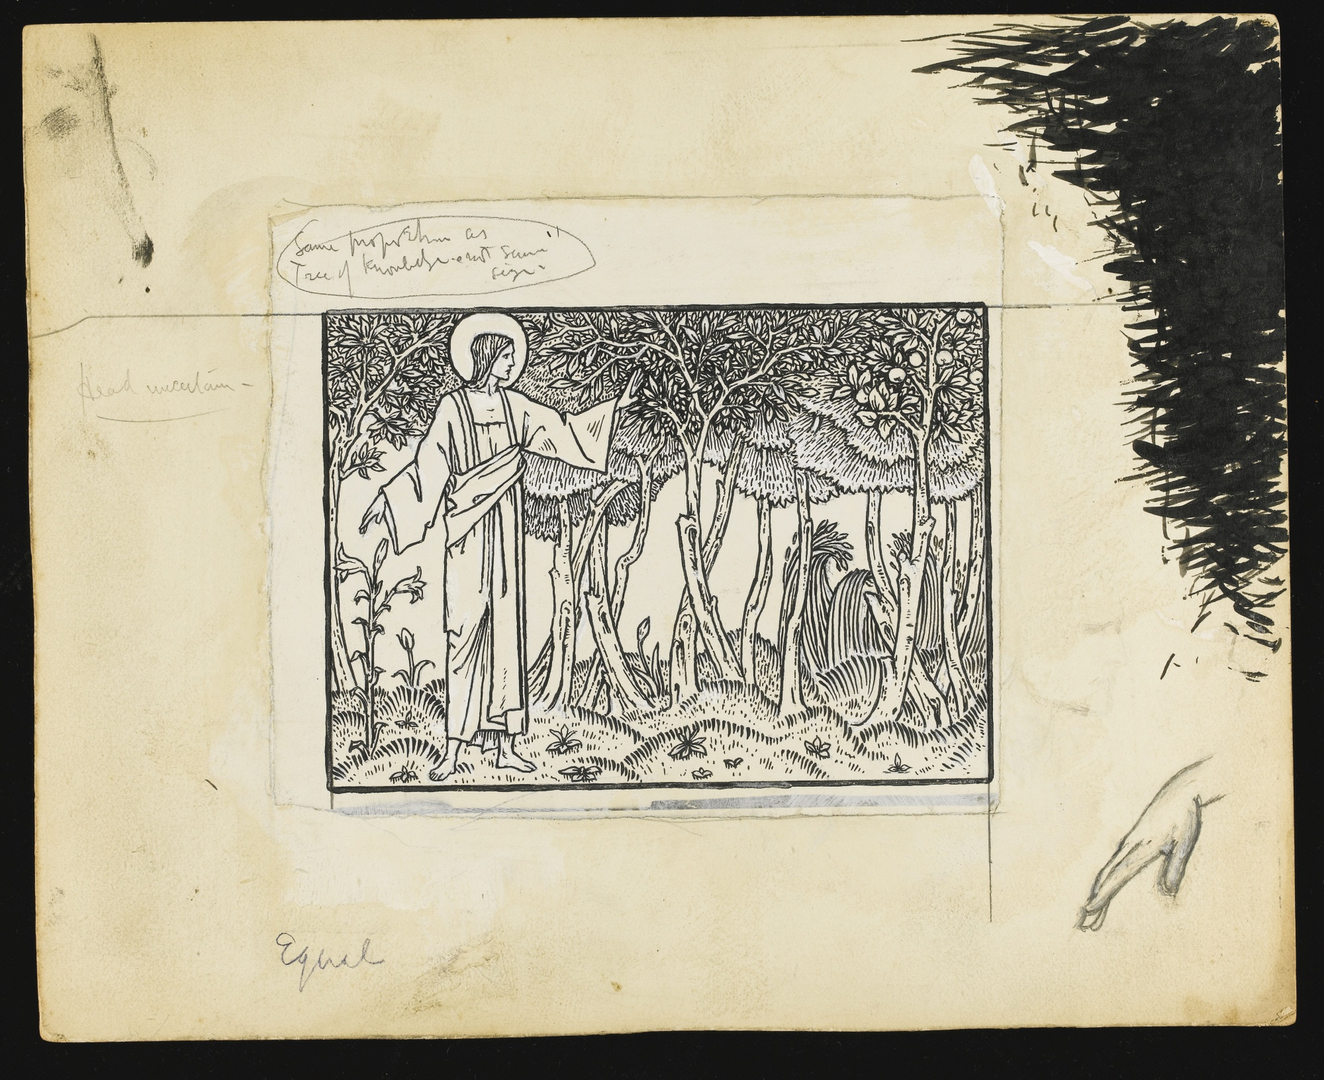 Same proportion as
Tree of Knowledge - not same
size -
Head uncertain -
Equal